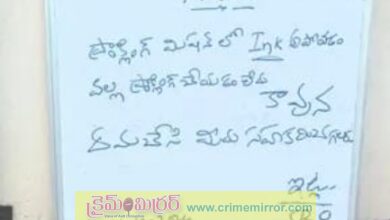 ఫ్రాంక్లింగ్ మిషన్ లో Ink ఐపోవడం
వల్ల ఫ్రాంక్లింగ్ చేయడం లేదు
కావున
దయచేసి మీరు సహకరించగలరు
ఇట్లు
క్రైమ్ మిర్రర్
www.crimemirror.com